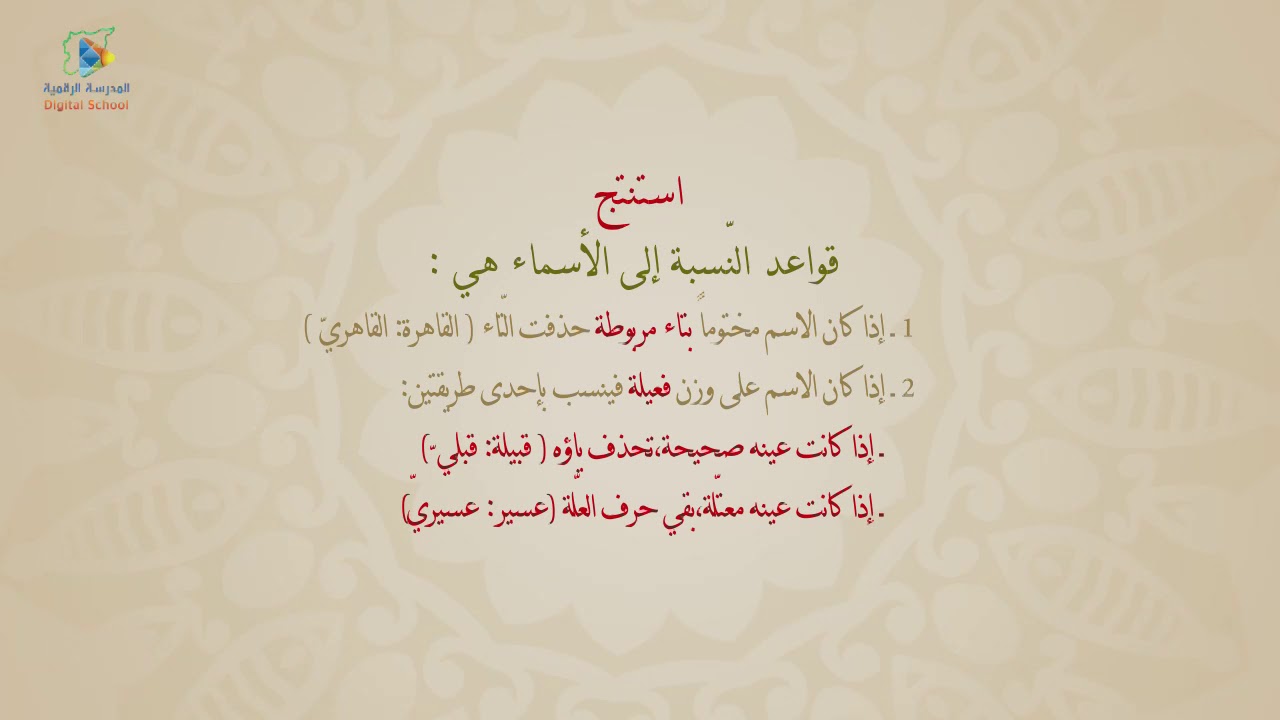 المدرسة الرقمية
Digital School
استنتج
قواعد النّسبة إلى الأسماء هي :
1 ـ إذا كان الاسم مختوماً بتاء مربوطة حذفت التّاء ( القاهرة: القاهريّ )
2 ـ إذا كان الاسم على وزن فعيلة فينسب بإحدى طريقتين:
ـ إذا كانت عينه صحيحة،تحذف ياؤه ( قبيلة: قبلي ّ)
ـ إذا كانت عينه معتلّة،بقي حرف العلّة (عسير: عسيريّ)